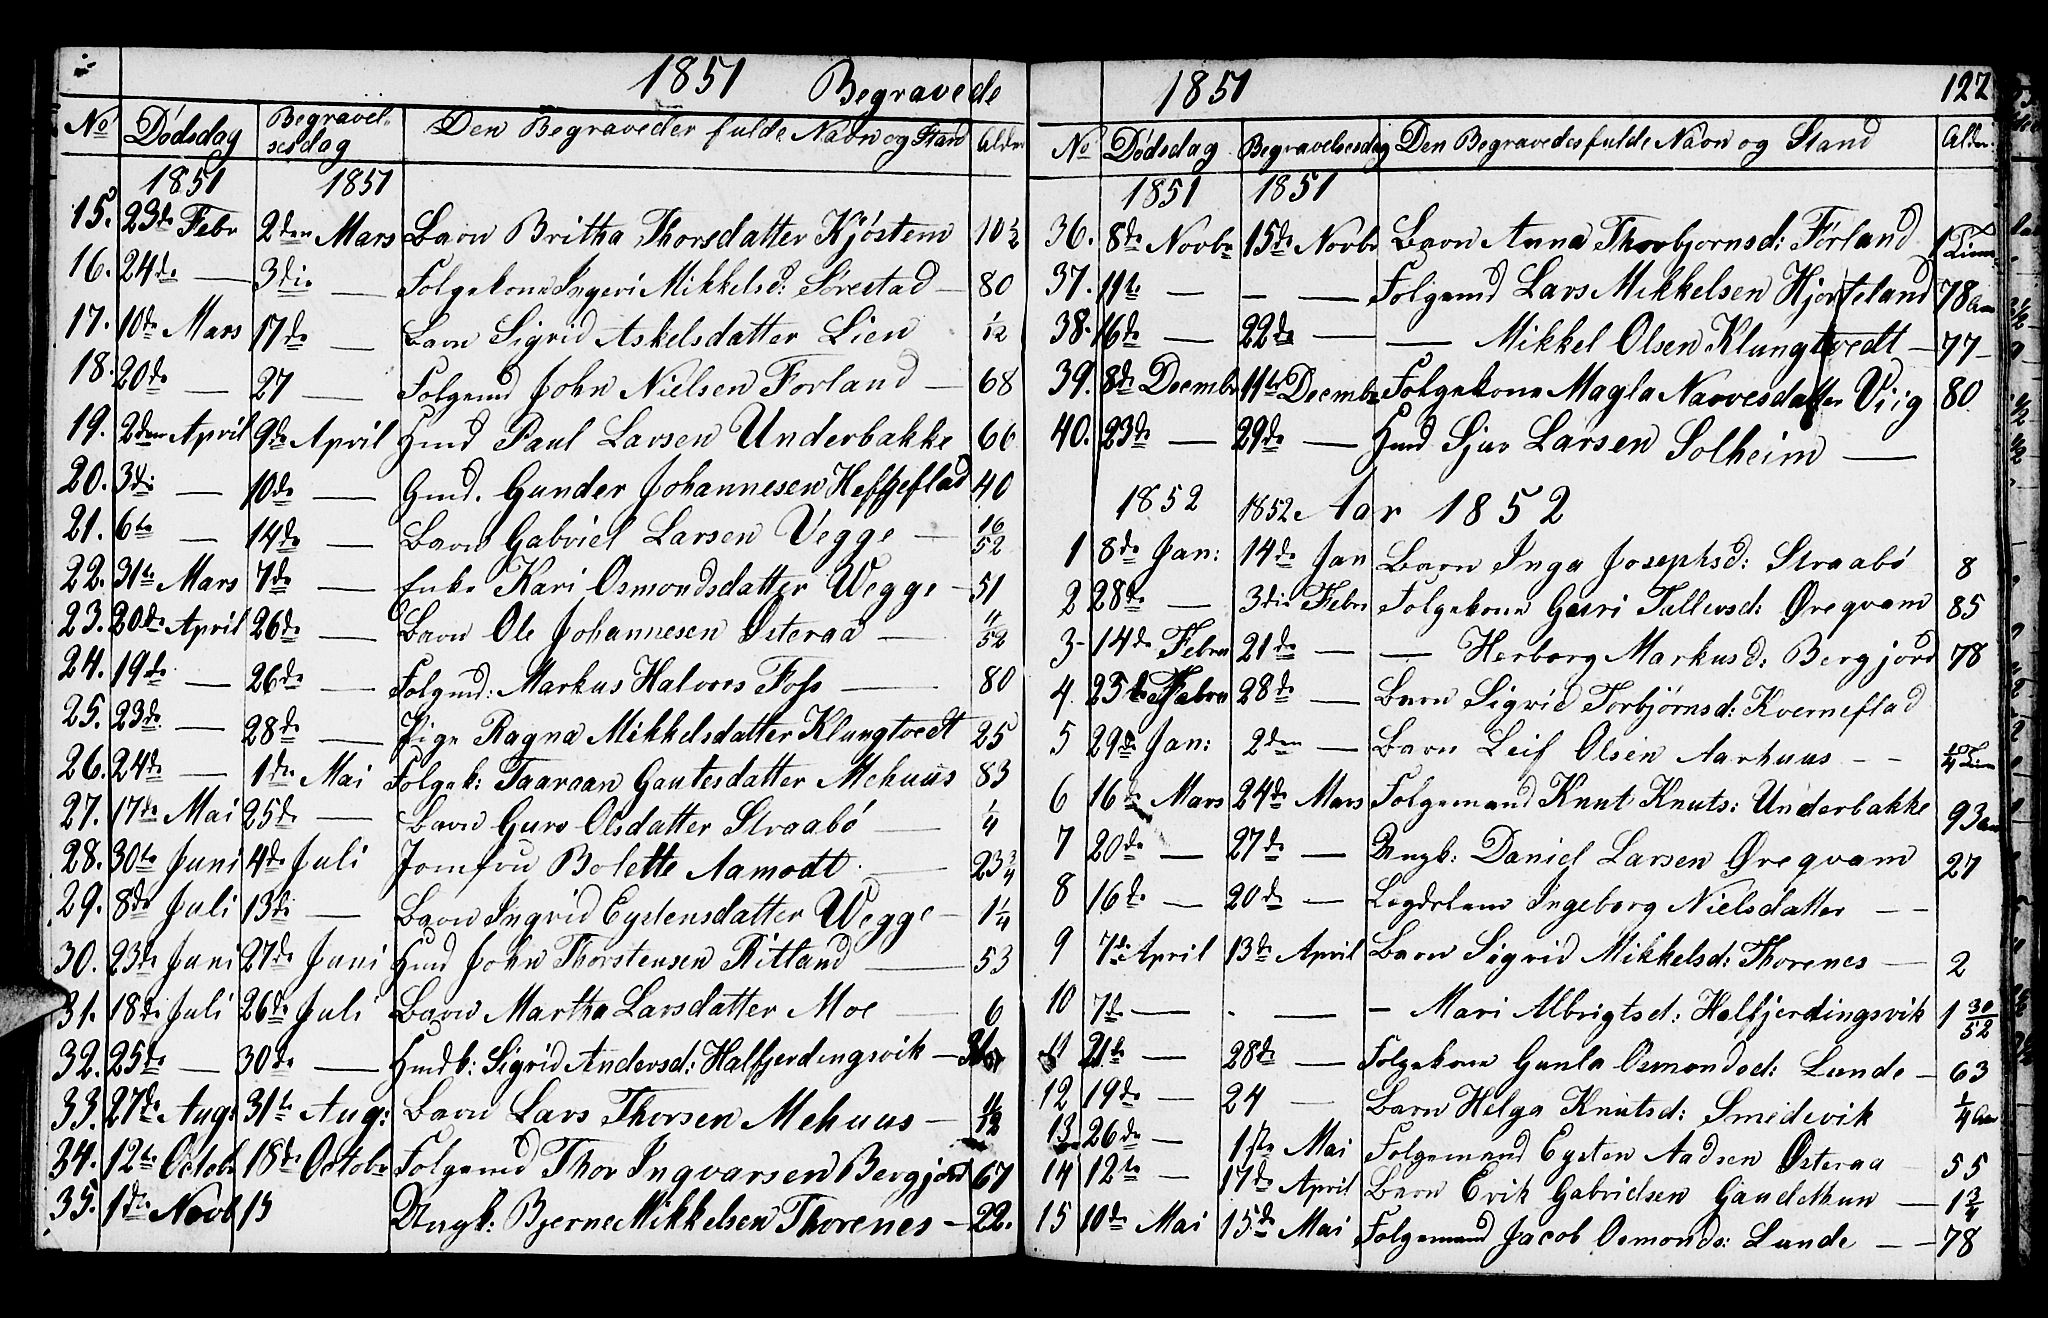 1851 Begravede
No Dödsdag Begravel- Den Begraveder fulde Navn og Stand Alder
sesdag
1851 1851
15. 23de Febr 2den Mars Barn Britha Thorsdatter Kjöstem 10 1/2
16. 24de — 3die — Folgekone Ingeri Mikkelsd: Sörestad — 80
17. 10de Mars 17de — Barn Sigrid Askelsdatter Lien 1/12
18. 20de — 27 — Folgemd John Nielsen Forland — 68
19. 2den April 9de April Hmd Paul Larsen Underbakke 66
20. 3die — 10de — Gmd. Gunder Johannesen Heffteflad 40
21. 6te — 14de — Barn Gabriel Larsen Vegge — 16/52
22. 31te Mars 7de — Enke Kari Osmondsdatter Wegge — 51
23. 20de April 26de — Barn Ole Johannesen Østeraa — 11/52
24. 19de — 26de — Folgmd: Markus Halvors Foss — 80
25. 23de — 28de — Pige Ragna Mikkelsdatter Klungtvedt 25
26. 24de — 1de Mai Folgek: Taaraan Gautesdatter Mehuus 83
27. 17de Mai 25de — Barn Guro Olsdatter Straabö — 1/4
28. 30te Juni 4de Juli Jomfru Bolette Aamodt. — 23 3/4
29. 8de Juli 13de — Barn Ingrid Eystensdatter Wegge — 1 1/4
30. 23de Juni 27de Juni Hmd John Thorstensen Ritland — 53
31. 18de Juli 26de Juli Barn Martha Larsdatter Moe — 6
32. 25de — 30de — Hmdk: Sigrid Andersd: Halfjerdingsvik —
33. 27de Aug: 31te Aug: Barn Lars Thorsen Mehuus — 11/12
34. 12te Octob 18de Octobr Folgemd Thor Ingvarsen Bergjord 67
35. 1de Novb 15 Ungk: Bjerne Mikkelsen Thorenes — 22.
1851 127
No Dödsdag Begravelsesdag Den Begravedes fulde Navn og Stand Alder
1851 1851
36. 8de Novbr 15de Novbr Barn Anna Thorbjornsd: Förland 1 Time
37. 11te — — — Folgemd Lars Mikkelsen Hjorteland 78 Aar
38. 16de — 22de — — Mikkel Olsen Klungtvedt — 77 —
39. 8de Decembr 11te Decembr Folgekone Magla Narvesdatter Viig 80
40. 23de — 29de — Hmd Sjur Larsen Solheim —
1852 1852 Aar 1852
1 8de Jan: 14de Jan Barn Inga Josephsd: Straabö 8
2 28de — 3die Febr Folgekone Guri Tallevsd: Øreqvam 85
3 - 14de Febru 21de — — Herborg Markusd: Bergjord 78
4 25de Febru 28de — Barn Sigrid Torbjörnsd: Kverneflad
5 29de Jan: 2den — Barn Leif Olsen Aarhuus — — 1/4 Time
6 16de Mars 24de Mars Folgemand Knut Knuts: Underbakke 93 Aar
7 20de — 27de — Ungk: Daniel Larsen Øreqvam 27
8 16de — 20de — Legdslem Ingeborg Nielsdatter — —
9 7de April 13de April Barn Sigrid Mikkelsd: Thorenes — 2
10 7de — - — — Mari Albrigtsd: Halfjerdingsvik 1 30/52
11 21te — 28de — Folgekone Gunla Osmondsd: Lunde — 63
12 19de — 24 — Barn Helga Knutsd: Smedevik 1/4 Aar
13 26de — 1ste Mai Folgemand Eysten Aadsen Østeraa — 55
14 12te — 17de April Barn Erik Gabrielsen Gaudethun — 1 3/4
15 10de Mai 15de Mai Folgemand Jacob Osmonds: Lunde — — 78